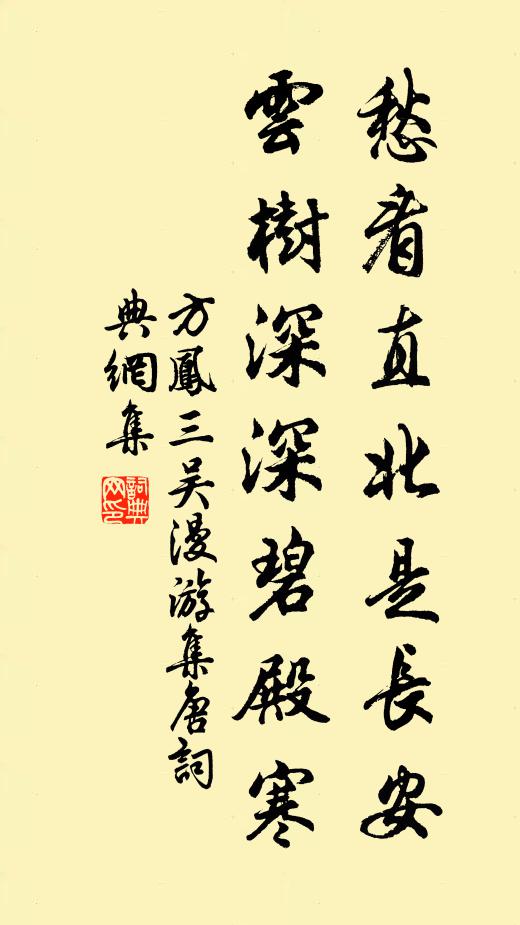 愁看直北是長安
雲樹深深碧殿寒
方鳳三吴漫游集唐詞
典網集
詞典網印